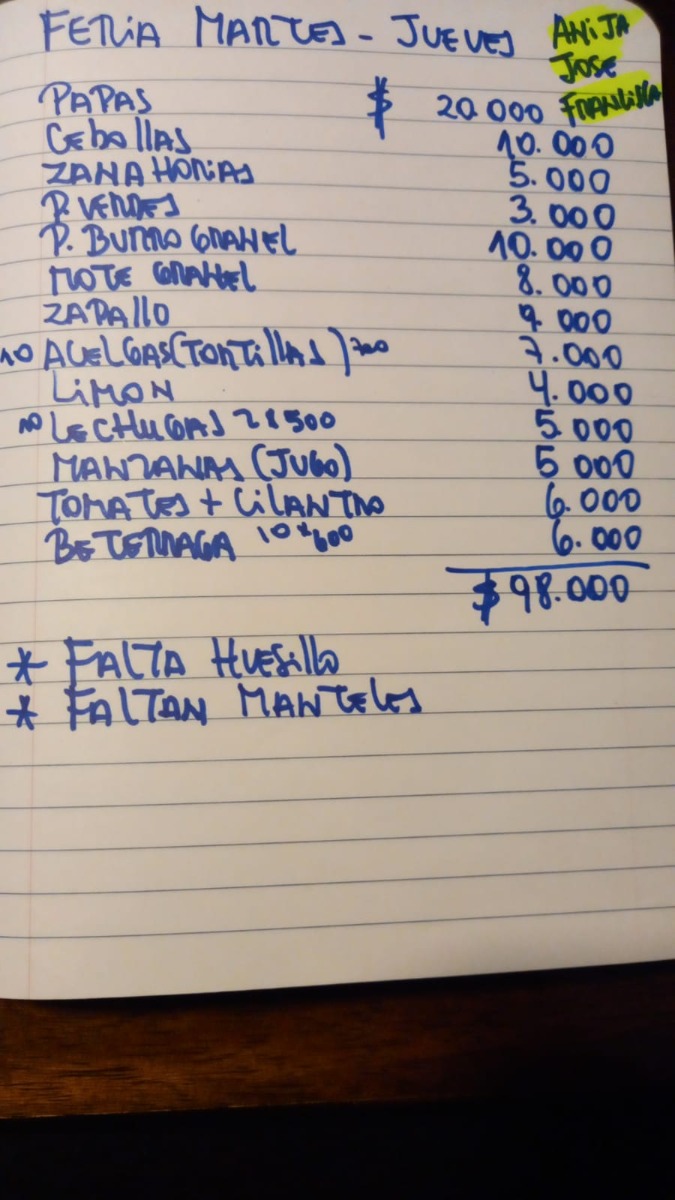 FERIA MARTES - JUEVES
ANITA
JOSE
FRANCISCA
PAPAS $ 20.000
CEBOLLAS 10.000
ZANAHORIAS 5.000
P. VERDES 3.000
P. BURRO GRANEL 10.000
MOTE GRANEL 8.000
ZAPALLO 9.000
10 ACELGAS (TORTILLAS) 700 7.000
LIMON 4.000
10 LECHUGAS 2 X 500 5.000
MANZANAS (JUGO) 5.000
TOMATES + CILANTRO 6.000
BETERRAGA 10 x 600 6.000
$ 98.000
* FALTA HUESILLO
* FALTAN MANTELES